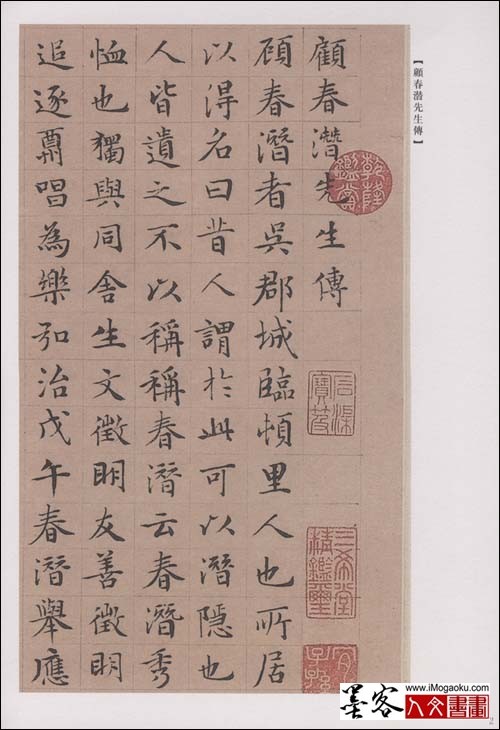 【顧春潛先生傳】
顧春潛先生傳
顧春潛者吳郡城臨頓里人也所居
以得名曰昔人謂於此可以潛隱也
人皆遺之不以稱稱春潛云春潛秀
恤也獨與同舍生文徵明友善徵明
追逐唱為樂弘治戊午春潛舉應
乾隆鑑賞
石渠寶笈
三希堂精鑑璽
宜子孫
墨客
www.iMogaoku.com
人文書畫
2